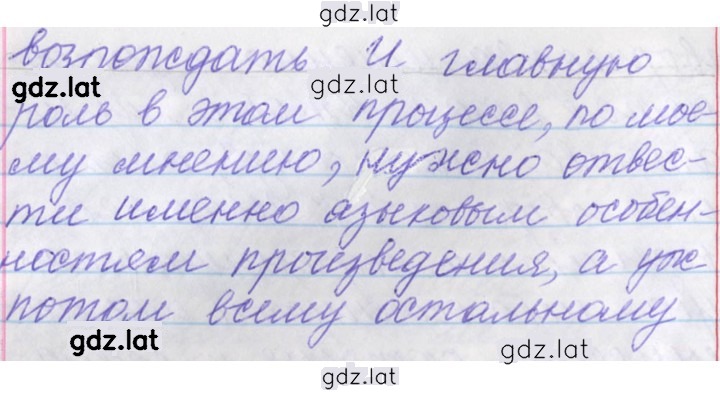 gdz.lat
возрождать И главную
gdz.lat gdz.lat
роль в этом процессе, по мое-
му мнению, нужно отвес-
ти именно языковым особен-
ностям произведения, а уж
потом всему остальному
gdz.lat gdz.lat
gdz.lat